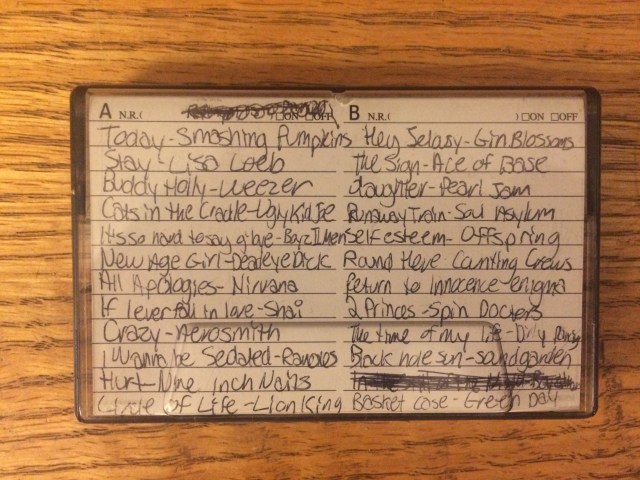 A N.R.( ) □ON □OFF B N.R.( ) □ON □OFF
Today-Smashing Pumpkins Hey Jelasy-Gin Blossoms
Stay-Lisa Loeb The Sign-Ace of Base
Buddy Holly-Weezer daughter-Pearl Jam
Cats in the Cradle-Ugly Kid Joe Runaway Train-Soul Asylum
Its so hard to say g'bye-Boyz II Men Self esteem-Offspring
New Age Girl-Deadeye Dick Round Here Counting Crows
All Apologies-Nirvana Return to Innocence-enigma
If I ever fall in love-Shai 2 Princes-Spin Docters
Crazy-Aerosmith The time of my life-Dirty
I Wanna be Sedated-Ramones Black hole sun-soundgarden
Hurt-Nine inch Nails
Circle of Life-Lion King Basket Case-Green Day